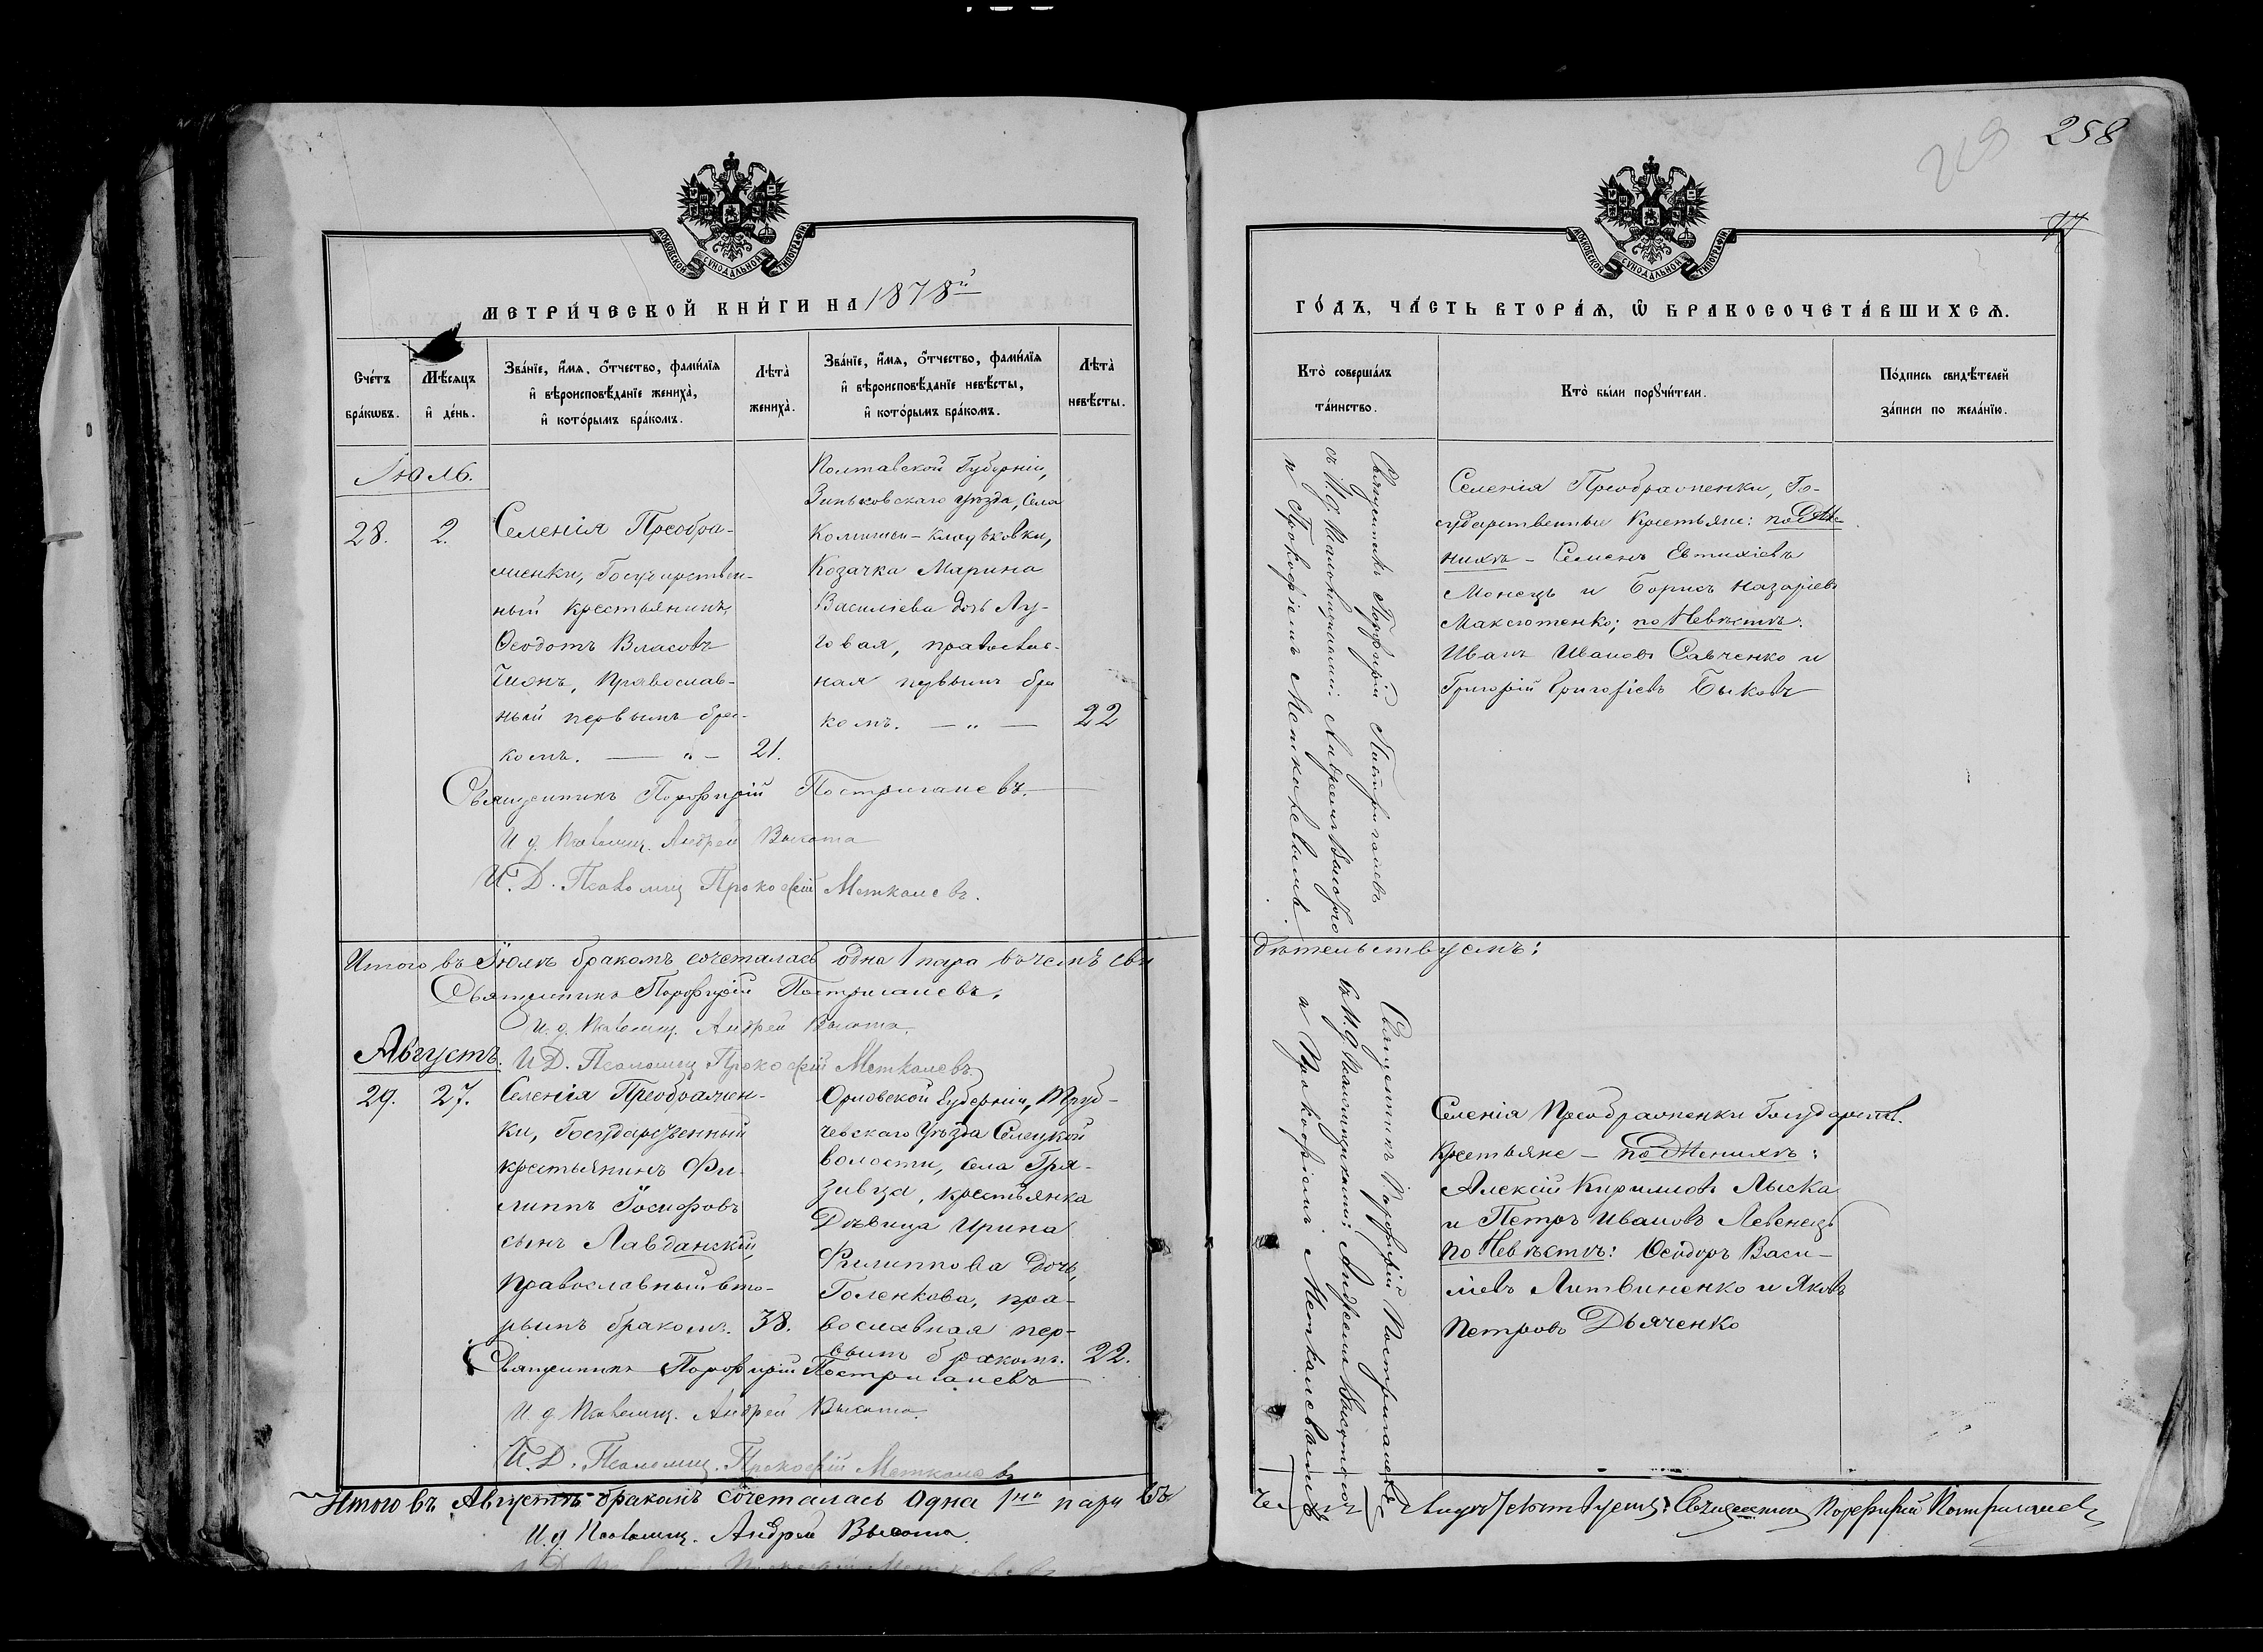 258
МОСКОВСКОЙ СѴНОДАЛЬНОЙ ТИПОГРАФІИ
МЕТРИ́ЧЕСКОЙ КНИ́ГИ НА 1878й
Сче́тъ бра́кωвъ.
Мѣ́сяцъ и҆ де́нь.
Зва́нїе, и҆́мѧ, ѻ҆́тчество, фами́лїѧ
и҆ вѣроисповѣ́данїе жениха̀,
и҆ кото́рымъ бра́комъ.
Лѣта̀ жениха̀.
Зва́нїе, и҆́мѧ, ѻ҆́тчество, фами́лїѧ
и҆ вѣроисповѣ́данїе невѣ́сты,
и҆ кото́рымъ бра́комъ.
Лѣта̀ невѣ́сты.
Іюль.
28.
2.
Селенія Преобра-
женки, Государствен-
ный крестьянинъ
Ѳеодотъ Власовъ
православ-
ный первымъ бра-
комъ. — „ —
21.
Полтавской Губерніи,
Зиньковскаго уѣзда, Села
Козачка Марина
Василіева дочь Лу-
говая, православ-
ная первымъ бра
комъ. — „ —
22
Священникъ Порфирій Постригачевъ.
И д. Псаломщ. Андрей Высота
И. Д. Псаломщ Прокофій Меткалевъ.
Итого въ Іюлѣ бракомъ сочеталась одна 1 пара въ чемъ сви
Священникъ Порфирій Постригачевъ.
И. д. Псаломщ. Андрей Высота.
Августъ.
И Д. Псаломщ Прокофій Меткалевъ.
29.
27.
Селенія Преображен-
ки, Государственный
крестьянинъ Фи-
липпъ Іосифовъ
сынъ Лавданскій,
православный вто-
рымъ бракомъ.
38.
Орловской Губерніи, Труб-
чевскаго Уѣзда Селецкой
волости, села Гря-
зивца, крестьянка
Дѣвица Ирина
Филиппова дочь,
Голенкова, пра-
вославная пер-
вымъ бракомъ.
22.
Священникъ Порфирій Постригачевъ
И. д Псаломщ. Андрей Высота.
И. Д. Псаломщ. Прокофій Меткалевъ
Итого въ Августѣ бракомъ сочеталась одна 1на пара въ
И. д Псаломщ. Андрей Высота.
МОСКОВСКОЙ СѴНОДАЛЬНОЙ ТИПОГРАФІИ
ГО́ДЪ, ЧА́СТЬ ВТОРА́Ѧ, Ѡ҆ БРАКОСОЧЕТА́ВШИХСѦ.
Кто̀ соверша́лъ
та́инство.
Кто̀ бы́ли порꙋчи́тели.
По́дпись свидѣ́телей
за́писи по жела́нїю.
Священникъ Порфирій Постригачевъ
съ И. д. Псаломщиками: Андреемъ Высотою
и Прокофіемъ Меткалевымъ
Селенія Преображенки, Го-
сударственные Крестьяне: по Же-
нихѣ – Семенъ Евтихіевъ
Монецъ и Борисъ Назаріевъ
Максютенко; по Невѣстѣ:
Иванъ Ивановъ Савченко и
Григорій Григоріевъ Быковъ
дѣтельствуемъ:
Священникъ Порфирій Постригачевъ
съ И. д. Псаломщиками: Андреемъ Высотою
и Прокофіемъ Меткалевымъ
Селенія Преображенки Государств.
Крестьяне – по Женихѣ:
Алексій Кирилловъ Лыска
и Петръ Ивановъ Левенецъ
по Невѣстѣ: Ѳеодоръ Васи-
ліевъ Литвиненко и Яковъ
Петровъ Дьяченко
чемъ свидѣтельствуемъ: Священникъ Порфирій Постригачевъ